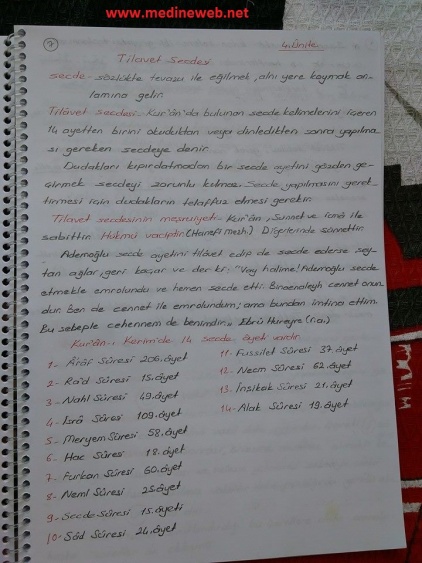 www.medineweb.net
7
4.Ünite
Tilavet Secdesi
secde - sözlükte tevazu ile eğilmek, alnı yere koymak an-
lamına gelir.
Tilâvet secdesi - Kur'ân'da bulunan secde kelimelerini içeren
14 ayetten birini okuduktan veya dinledikten sonra yapılma-
sı gereken secdeye denir.
Dudakları kıpırdatmadan bir secde ayetini gözden ge-
çirmek secdeyi zorunlu kılmaz. Secde yapılmasını gerek-
tirmesi için dudakların telaffuz etmesi gerekir.
Tilavet secdesinin meşruiyeti - Kur'ân, Sünnet ve icmâ ile
sabittir. Hükmü vaciptir. (Hanefi mesh.) Diğerlerinde sünnettir.
Ademoğlu secde ayetini tilâvet edip de secde ederse şey-
tan ağlar, geri kaçar ve der ki; "Vay halime! Ademoğlu secde
etmekle emrolundu ve hemen secde etti. Binaenaleyh cennet onun-
dur. ben de cennet ile emrolundum; ama bundan imtina ettim.
Bu sebeple cehennem de benimdir." Ebû Hureyre (r.a.)
Kur'ân-ı Kerim'de 14 secde âyeti vardır.
1- Â'râf Sûresi 206. âyet
2- Ra'd Sûresi 15. âyet
3- Nahl Sûresi 49. âyet
4- İsrâ Sûresi 109. âyet
5- Meryem Sûresi 58. âyet
6- Hac Sûresi 18. âyet
7- Furkan Sûresi 60. âyet
8- Neml Sûresi 25. âyet
9- Secde Sûresi 15. âyeti
10- Sâd Sûresi 24. âyet
11- Fussilet Sûresi 37. âyet
12- Necm Sûresi 62. âyet
13- İnşikak Sûresi 21. âyet
14- Alak Sûresi 19. âyet